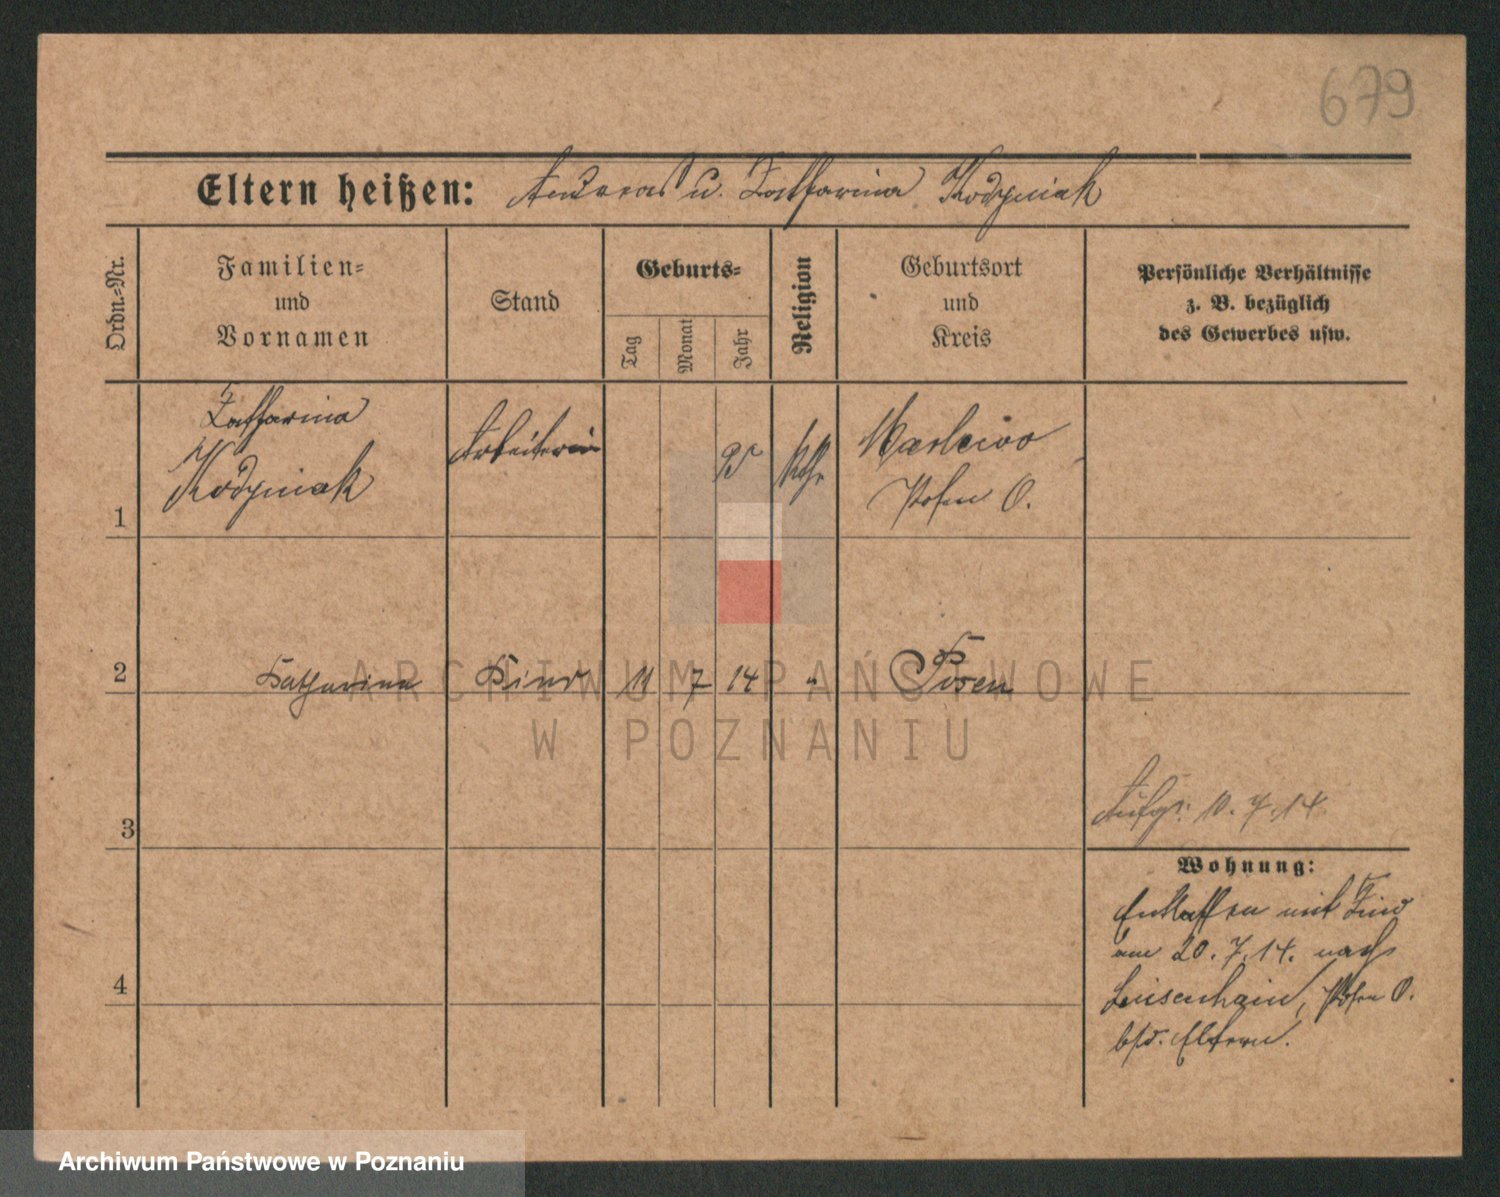 679
Eltern heißen: Andreas u. Katharina Kozyniak
Ordn.-Nr.
Familien-
und
Vornamen
Stand
Geburts-
Tag
Monat
Jahr
Religion
Geburtsort
und
Kreis
Persönliche Verhältnisse
z. B. bezüglich
des Gewerbes usw.
1
Katharina
Arbeiterin
95
kath.
Posen O.
2
Katharina
Kind
11
7
14
"
Posen
3
Aufg. 10. 7. 14
4
Wohnung:
Entlassen mit Kind
am 20. 7. 14. nach
Luisenhain, Posen O.
Eltern.
ARCHIWUM PAŃSTWOWE
W POZNANIU
Archiwum Państwowe w Poznaniu